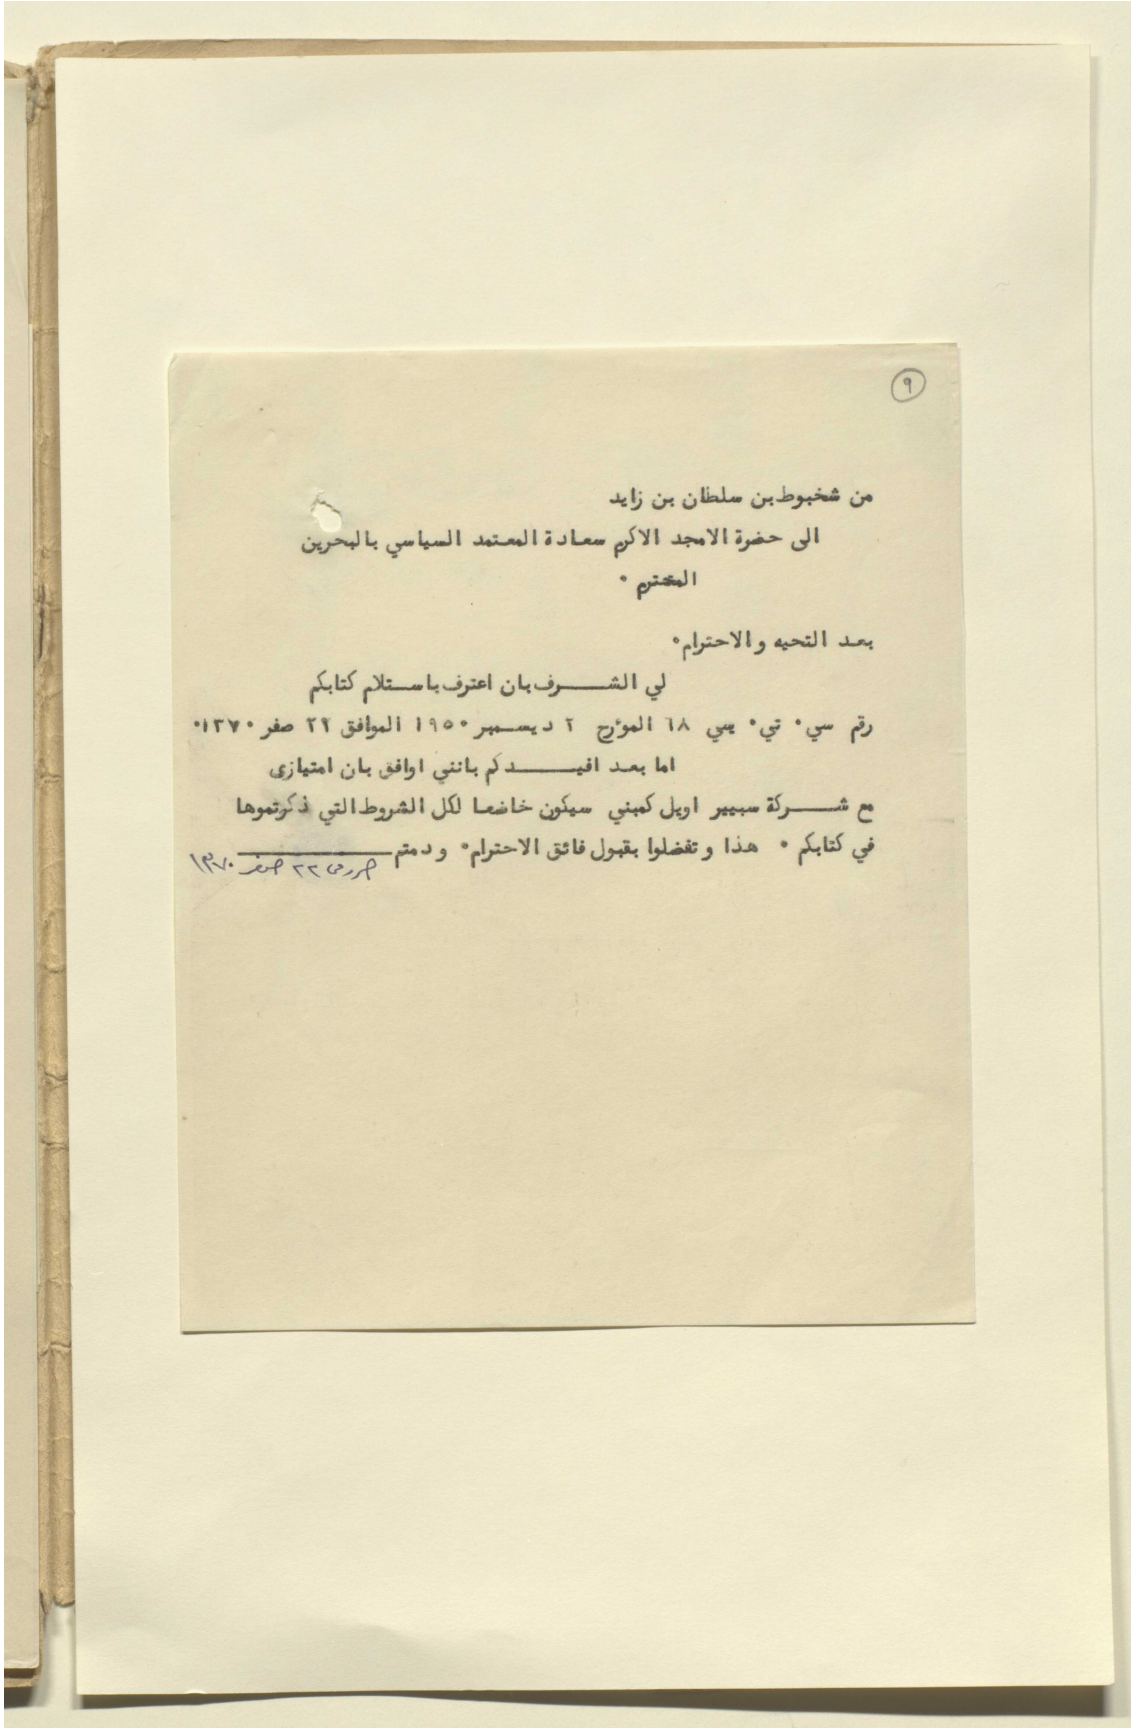 ٩
من شخبوط بن سلطان بن زايد
الى حضرة الامجد الاكرم سعادة المعتمد السياسي بالبحرين
المحترم ٠
بعد التحيه والاحترام٠
لي الشـــرف بان اعترف باستلام كتابكم
رقم سي٠ تي٠ سي ٦٨ المؤرخ ٢ ديسمبر ١٩٥٠ الموافق ٢٢ صفر ١٣٧٠٠
اما بعد افيـــدكم بانني اوافق بان امتيازى
مع شـــركة سبيير اويل كمبني سيكون خاضعا لكل الشروط التي ذكرتموها
في كتابكم ٠ هذا وتفضلوا بقبول فائق الاحترام٠ ودمتم
حرر في ٢٢ صفر ١٣٧٠